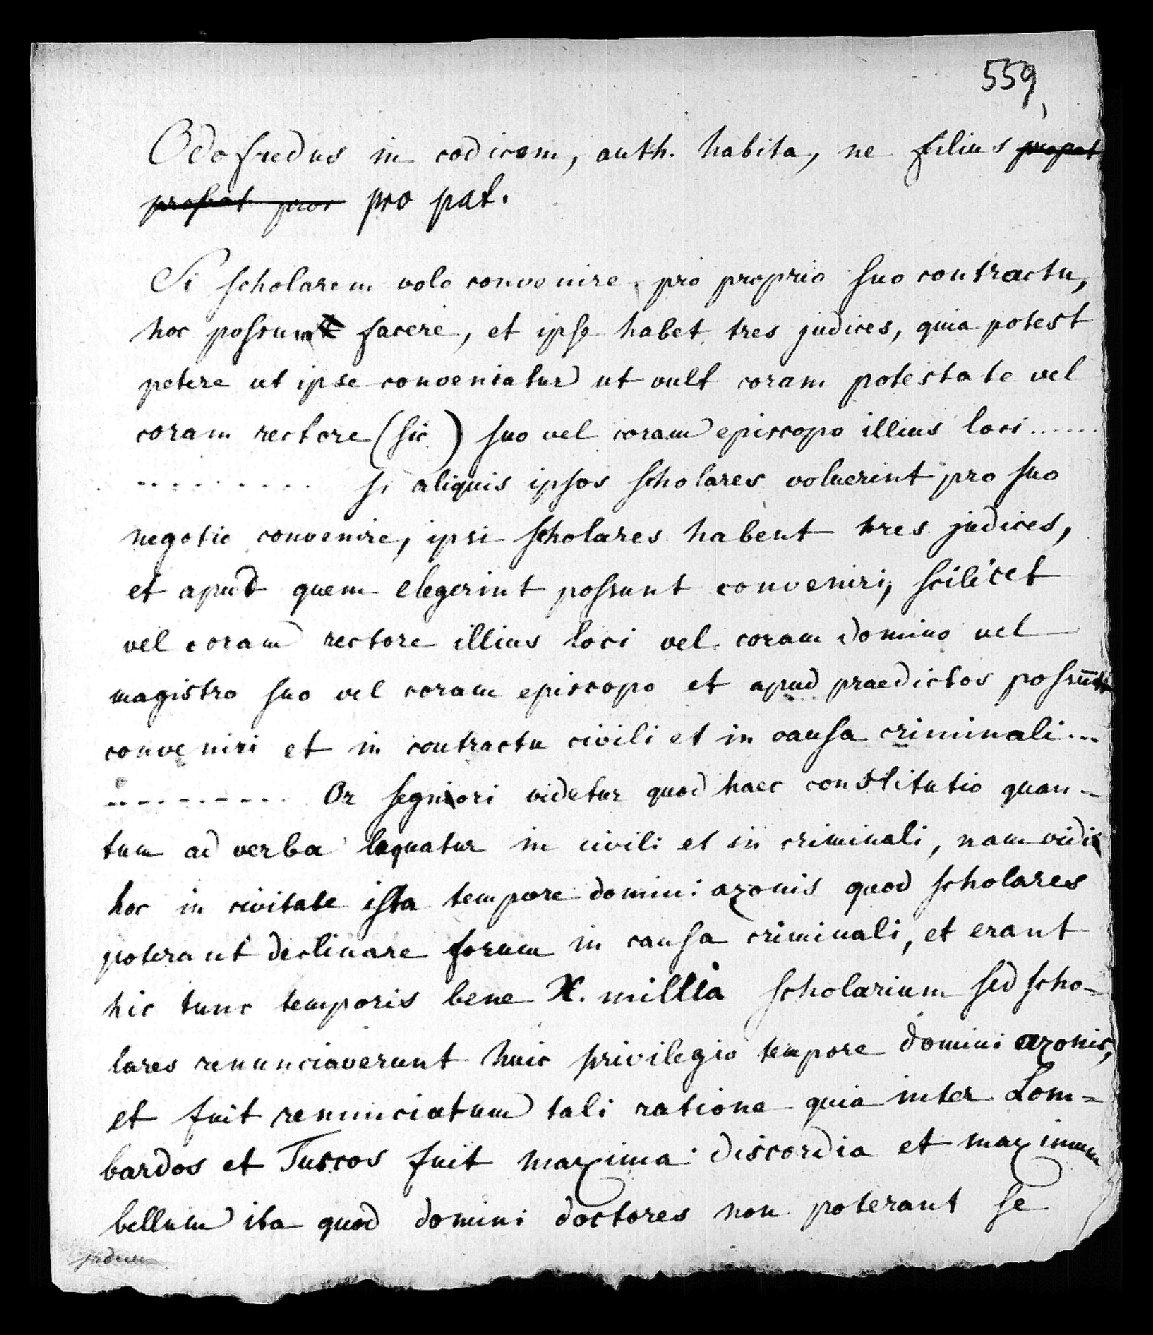 559
Odofredus in codicem, auth. habita, ne filius propat
pro pat.
Si scholarem volo convenire pro proprio suo contractu,
hoc possum facere, et ipse habet tres judices, quia potest
petere ut ipse conveniatur ut vult coram potestate vel
coram rectore (sic) suo vel coram episcopo illius loci ......
.......... si aliquis ipsos scholares voluerint pro suo
negotio convenire, ipsi scholares habent tres judices,
et apud quem elegerint possunt conveniri, scilicet
vel coram rectore illius loci vel coram domino vel
magistro suo vel coram episcopo et apud praedictos possunt
conveniri et in contractu civili et in causa criminali ...
.......... Or segniori videtur quod haec constitutio quan-
tum ad verba loquatur in civili et in criminali, nam vidi
hoc in civitate ista tempore domini azonis quod scholares
poterant declinare forum in causa criminali, et erant
hic tunc temporis bene X. millia scholarium sed scho-
lares renunciaverunt huic privilegio tempore domini azonis,
et fuit renunciatum tali ratione quia inter Lom-
bardos et Tuscos fuit maxima discordia et maximum
bellum ita quod domini doctores non poterant se